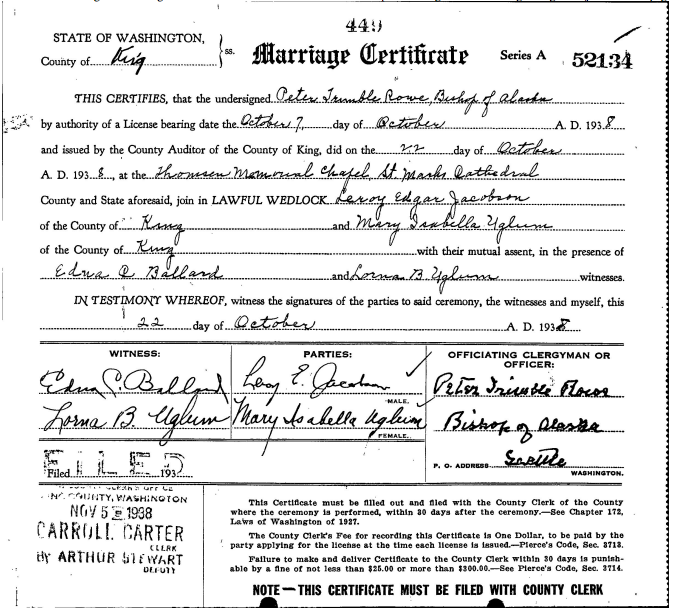 449
STATE OF WASHINGTON,
County of King ss.
Marriage Certificate
Series A 52134
THIS CERTIFIES, that the undersigned Peter Trimble Rowe, Bishop of Alaska
by authority of a License bearing date the October 7, day of October A. D. 1938
and issued by the County Auditor of the County of King, did on the 22 day of October
A. D. 1938, at the Thomsen Memorial Chapel, St. Marks Cathedral
County and State aforesaid, join in LAWFUL WEDLOCK Leroy Edgar Jacobson
of the County of King and Mary Isabella Uglum
of the County of King with their mutual assent, in the presence of
Edna C Ballard and Lorna B. Uglum witnesses.
IN TESTIMONY WHEREOF, witness the signatures of the parties to said ceremony, the witnesses and myself, this
22 day of October A. D. 1938
WITNESS:
Edna C. Ballard
Lorna B. Uglum
PARTIES:
Leroy E. Jacobson
MALE.
Mary Isabella Uglum
FEMALE.
OFFICIATING CLERGYMAN OR
OFFICER:
Peter Trimble Rowe
Bishop of Alaska
P. O. ADDRESS Seattle
WASHINGTON.
FILED
Filed 193
COUNTY, WASHINGTON
NOV 5 1938
CARROLL CARTER
CLERK
BY ARTHUR STEWART
DEPUTY
This Certificate must be filled out and filed with the County Clerk of the County
where the ceremony is performed, within 30 days after the ceremony.—See Chapter 172,
Laws of Washington of 1927.
The County Clerk's Fee for recording this Certificate is One Dollar, to be paid by the
party applying for the license at the time each license is issued.—Pierce's Code, Sec. 3713.
Failure to make and deliver Certificate to the County Clerk within 30 days is punish-
able by a fine of not less than $25.00 or more than $300.00.—See Pierce's Code, Sec. 3714.
NOTE — THIS CERTIFICATE MUST BE FILED WITH COUNTY CLERK